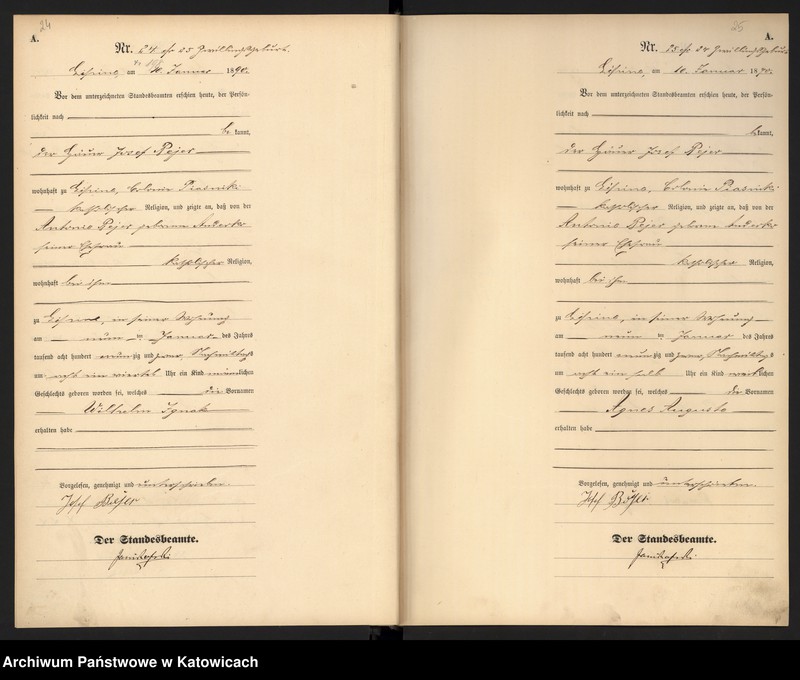 24
A.
Nr. 24
am 10. Januar 1890.
Vor dem unterzeichneten Standesbeamten erschien heute, der Persön-
lichkeit nach
be kannt,
der Häuer Josef Pejer
wohnhaft zu
katholischer Religion, und zeigte an, daß von der
Antonie Pejer geborene
seiner Ehefrau
katholischer Religion,
wohnhaft bei ihm
zu in seiner Wohnung
am neun ten Januar des Jahres
tausend acht hundert neun zig und Nachmittags
um acht ein viertel Uhr ein Kind männlichen
Geschlechts geboren worden sei, welches die Vornamen
Wilhelm Ignatz
erhalten habe
Vorgelesen, genehmigt und unterschrieben.
Josef
Der Standesbeamte.
25
A.
Nr. 25
am 10. Januar 1890.
Vor dem unterzeichneten Standesbeamten erschien heute, der Persön-
lichkeit nach
be kannt,
der Häuer Josef Pejer
wohnhaft zu
katholischer Religion, und zeigte an, daß von der
Antonie Pejer geborene
seiner Ehefrau
katholischer Religion,
wohnhaft bei ihm
zu in seiner Wohnung
am neun ten Januar des Jahres
tausend acht hundert neun zig und Nachmittags
um acht ein halb Uhr ein Kind weiblichen
Geschlechts geboren worden sei, welches die Vornamen
Agnes Augusta
erhalten habe
Vorgelesen, genehmigt und unterschrieben.
Josef
Der Standesbeamte.
Archiwum Państwowe w Katowicach